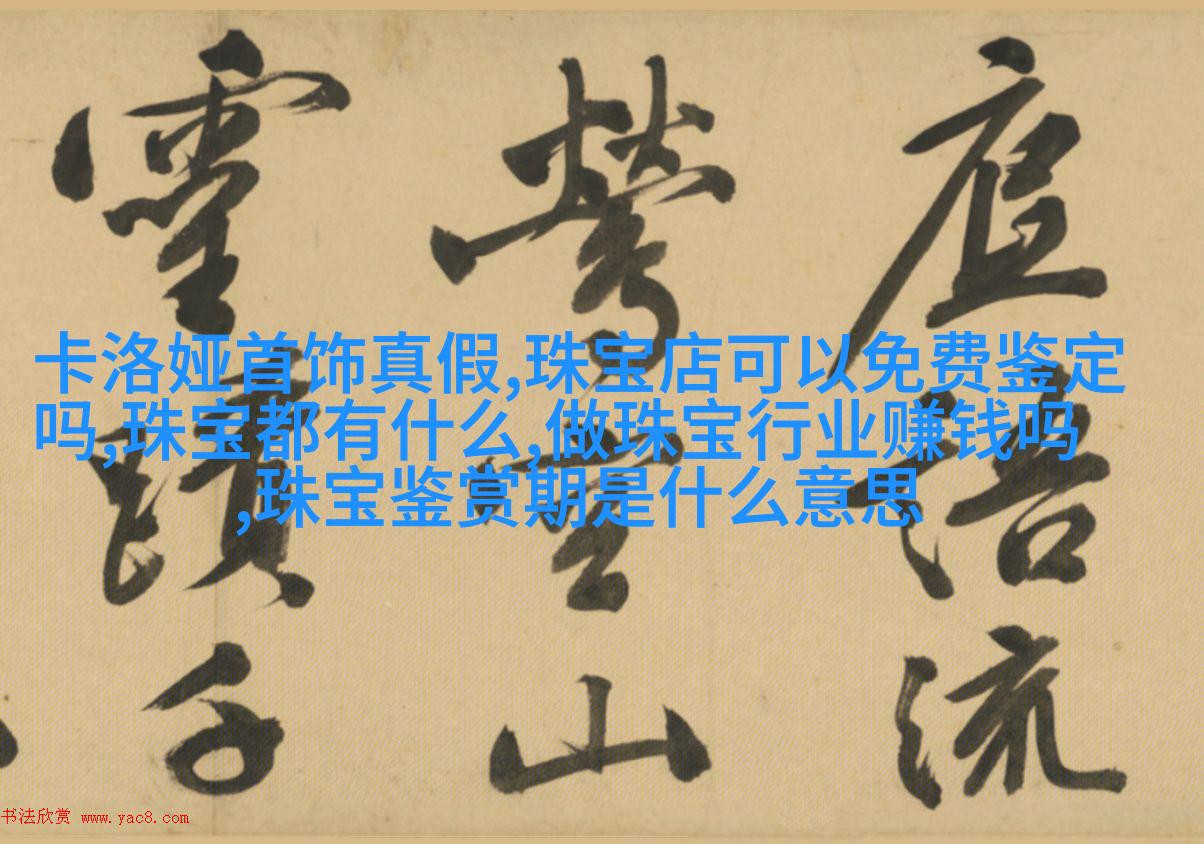 卡洛娅首饰真假,珠宝店可以免费鉴定
吗,珠宝都有什么,做珠宝行业赚钱吗
,珠宝鉴赏期是什么意思
流
山
靈蹟
书法欣赏 www.yac8.com